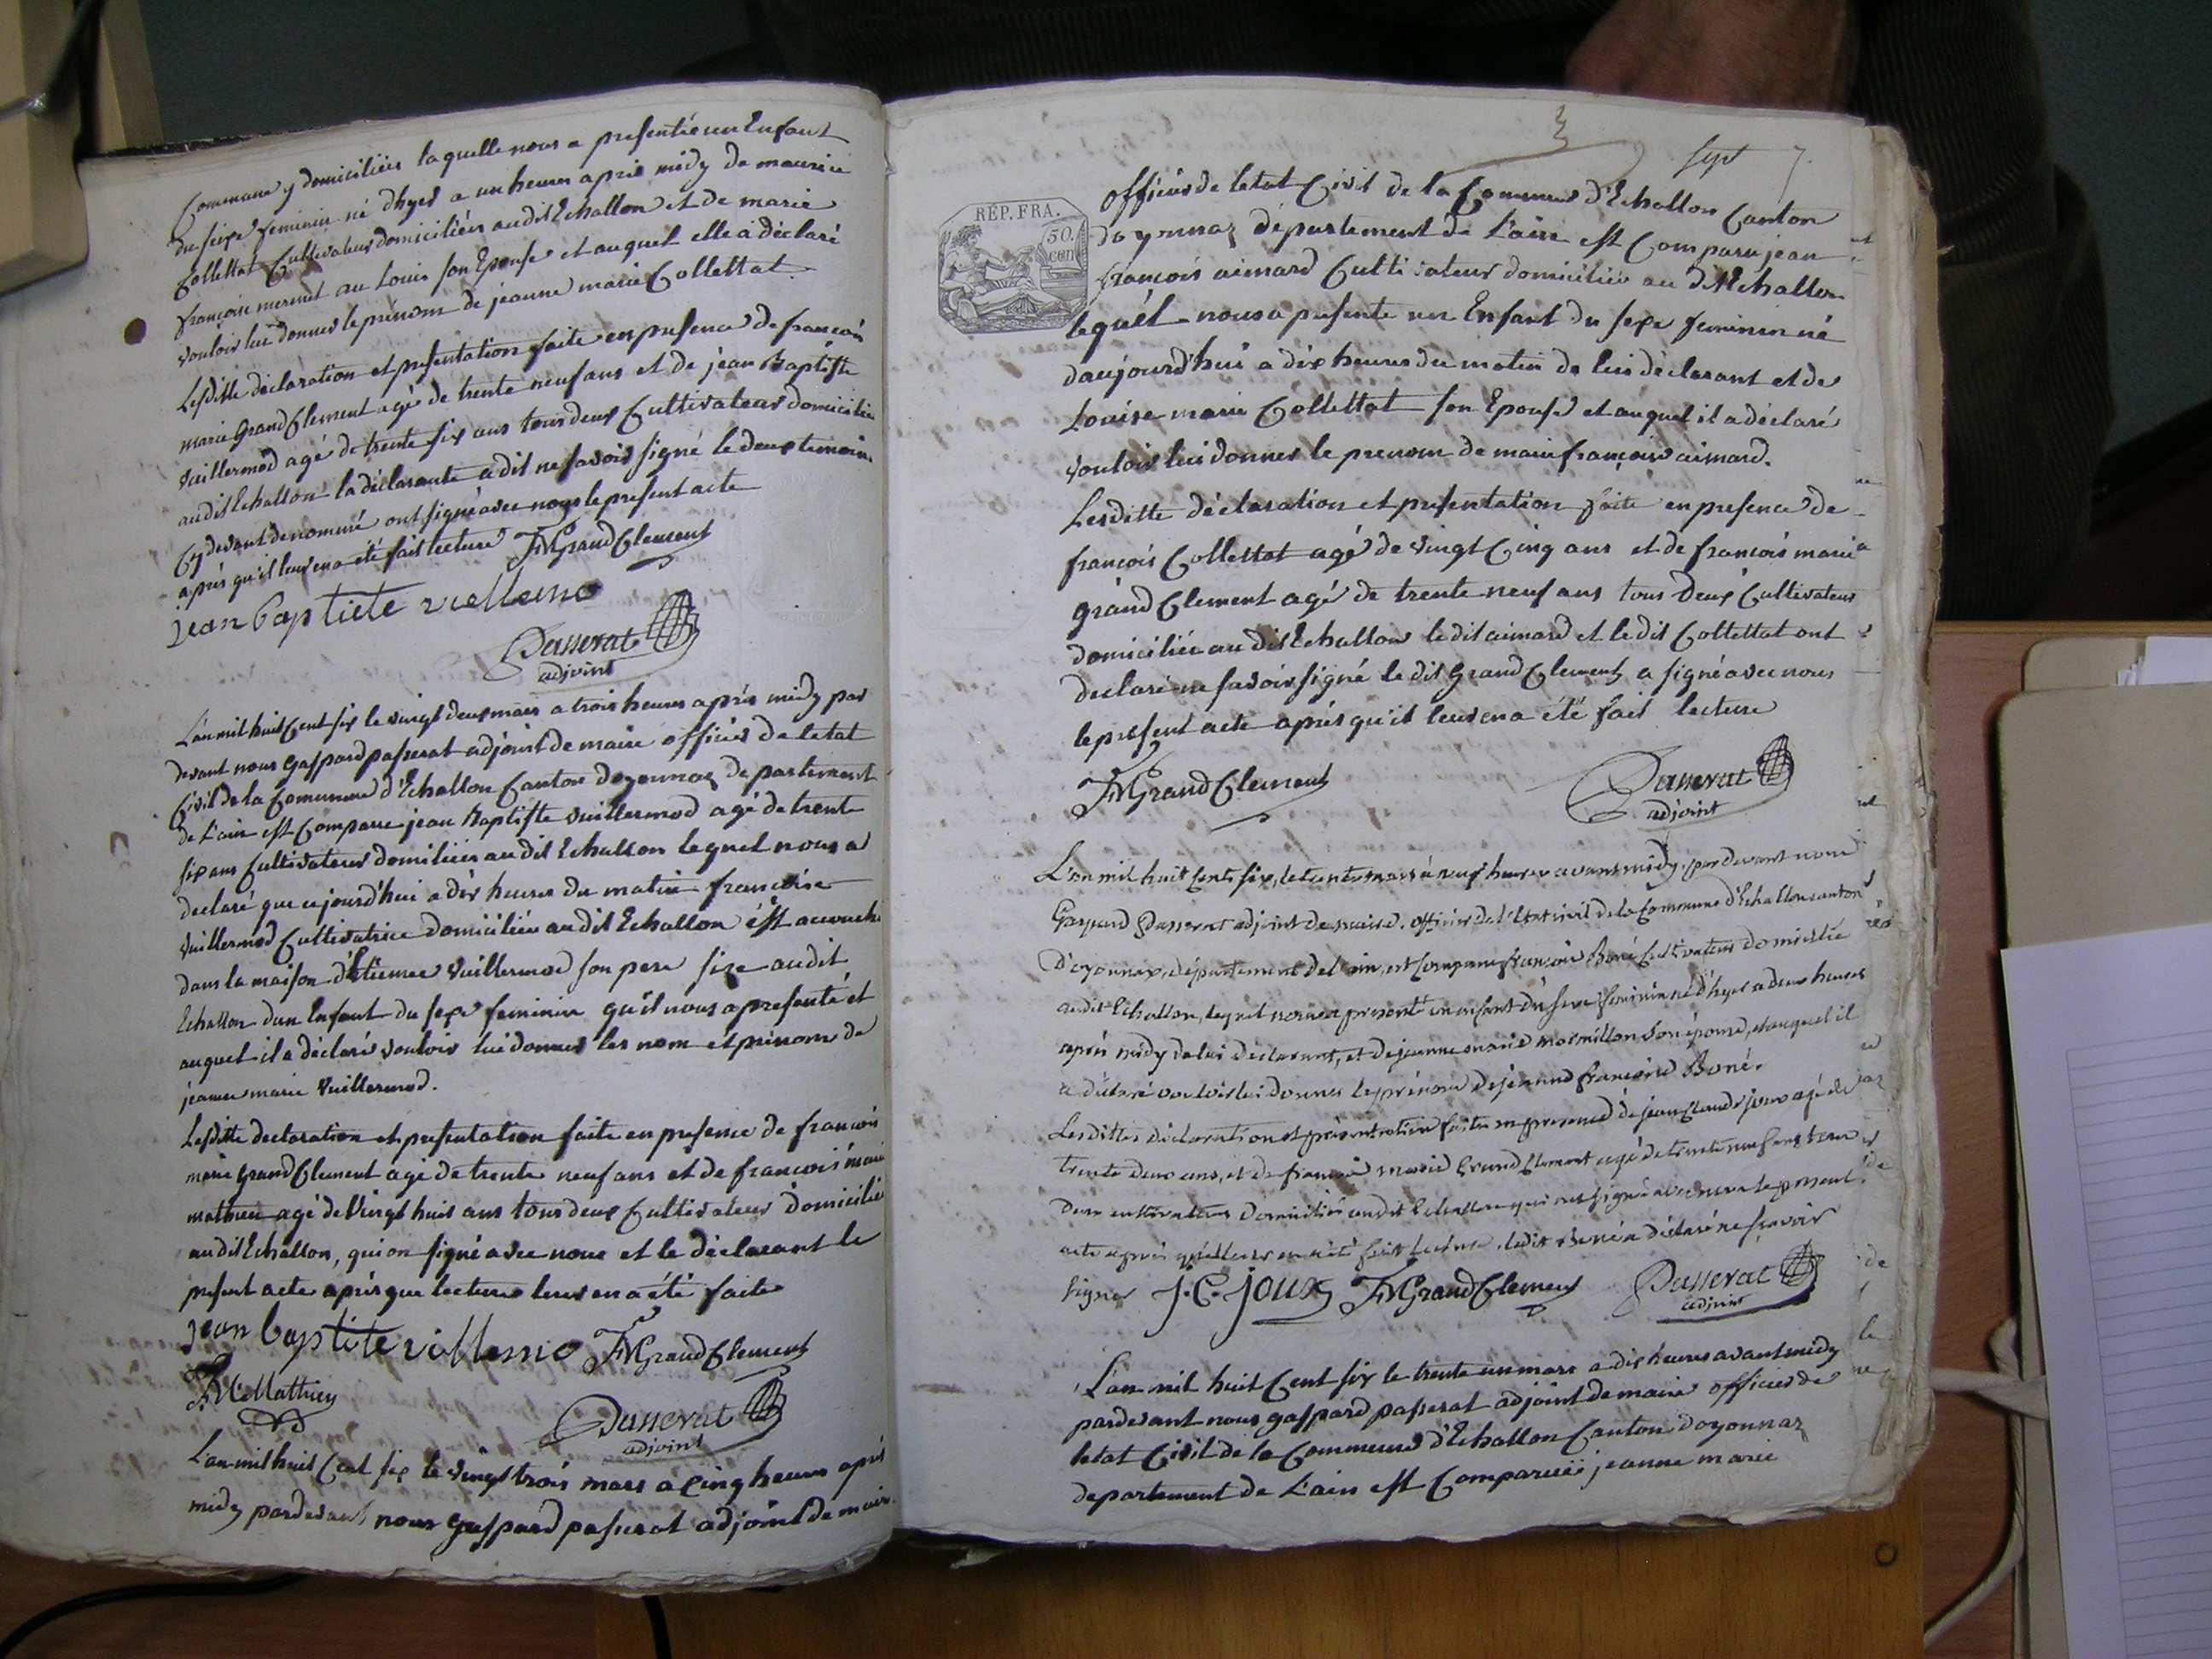 Commune y domiciliée laquelle nous a presentée un Enfant
du sexe feminin né dhyer a un heures aprié midy de maurice
Collettat Cultivateur domiciliéer audit Echallon et de marie
françoise mermet au Louis son Epouse et auquel elle a déclaré
vouloir lui donner le prénom de jeanne marie Collettat.
Lesditte déclaration et presentation faite en presence de françois
marie Grand Clement agé de trente neuf ans et de jean Baptiste
vuillermod agé de trente six ans tous deux Cultivateur domicilié
audit Echallon la déclarante a dit ne savoir signé le deux temoins
Cy devant denommé ont signé avec nous le present acte
après qu'il leur en a été fait lecture FMGrandClement
jean baptiete viellemo
Passerat
adjoint
L'an mil huit Cent six le vingt deux mars a trois heures aprés midy par
devant nous gaspard passerat adjoint de maire officier de letat
Civil de la Commune d'Echallon Canton doyonnaz departement
de L'ain est Comparu jean Baptiste vuillermod agé de trente
six ans Cultivateur domiliéer audit Echallon lequel nous a
declaré que cejourd'hui a dix heures du matin françoise
vuillermod Cultivatrice domiciliée audit Echallon ést accouché
dans la maison d'Etienne vuillermod son pere size audit
Echallon dun Enfant du sexe feminin qu'il nous a presenté et
auquel il a déclaré vouloir lui donner les nom et prénom de
jeanne marie vuillermod.
Lesditte declaration et presentation faite en presence de françois
marie grand Clement agé de trente neuf ans et de francois marie
mathieu agé de Vingt huit ans tous deux Cultivateur domicilié
audit Echallon, qui on signé avec nous et le déclarant le
present acte aprés que lecture leur en a été faite
jean baptite villemo FMGrandClement
FM Mathieu
Passerat
adjoint
L'an mil huit Cent six le vingt trois mars a cinq heures aprés
midy pardevant nous gaspard passerat adjoint de maire
sept 7.
RÉP. FRA.
50.
cen
officier de letat Civil de la Commune d'Echallon Canton
doyonnaz département de L'ain est Comparu jean
françois aimard Cultivateur domicilié au dit Echallon
lequél nous a presenté un Enfant du sexe feminin né
daujourd'hui a dix heures du matin de lui déclarant et de
Louise marie Collettat son Epouse et auquel il a déclaré
vouloir lui donner le prenom de marie françoise aimard.
Lesditte déclaration et presentation faite en presence de
françois Collettat agé de vingt Cinq ans et de francois marie
grand Clement agé de trente neuf ans tous deux Cultivateur
domiciliée audit Echallon ledit aimard et le dit Collettat ont
declaré ne savoir signé le dit Grand Clement a signé avec nous
le present acte aprés qu'il leur en a été fait lecture
FMGrandClement
Passerat
adjoint
L'an mil huit Cents six, le trente mars à neuf heures avant midy, par devant nous
Gaspard Passerat adjoint de maire, officier de l'Etat civil de la Commune d'Echallon canton
D'oyonnax, département de l'ain, est Comparu françois Boné Cultivateur domicilié
audit Echallon, lequel nous a presenté un enfant du sexe feminin né d'hyer a deux heures
aprés midy de lui déclarant, et de jeanne marie mormillon son épouse, et auquel il
a déclaré vouloir lui donner le prénom de jeanne françoise Boné.
Lesdittes déclaration et présentation faite en presence de jean Claude joux agé de
trente deux ans, et de francois marie Grand Clement agé de trente neuf ans tous
deux cultivateurs domiciliés audit Echallon qui ont signé avec nous le present
acte aprés qu'il leur en a été fait lecture, ledit Boné a déclaré ne scavoir
signer J. C. joux FMGrandClement Passerat
adjoint
L'an mil huit Cent six le trente un mars a dix heures avant midy
pardevant nous gaspard passerat adjoint de maire officier de
letat Civil de la Commune d'Echallon Canton doyonnaz
departement de L'ain est Comparuëe jeanne marie